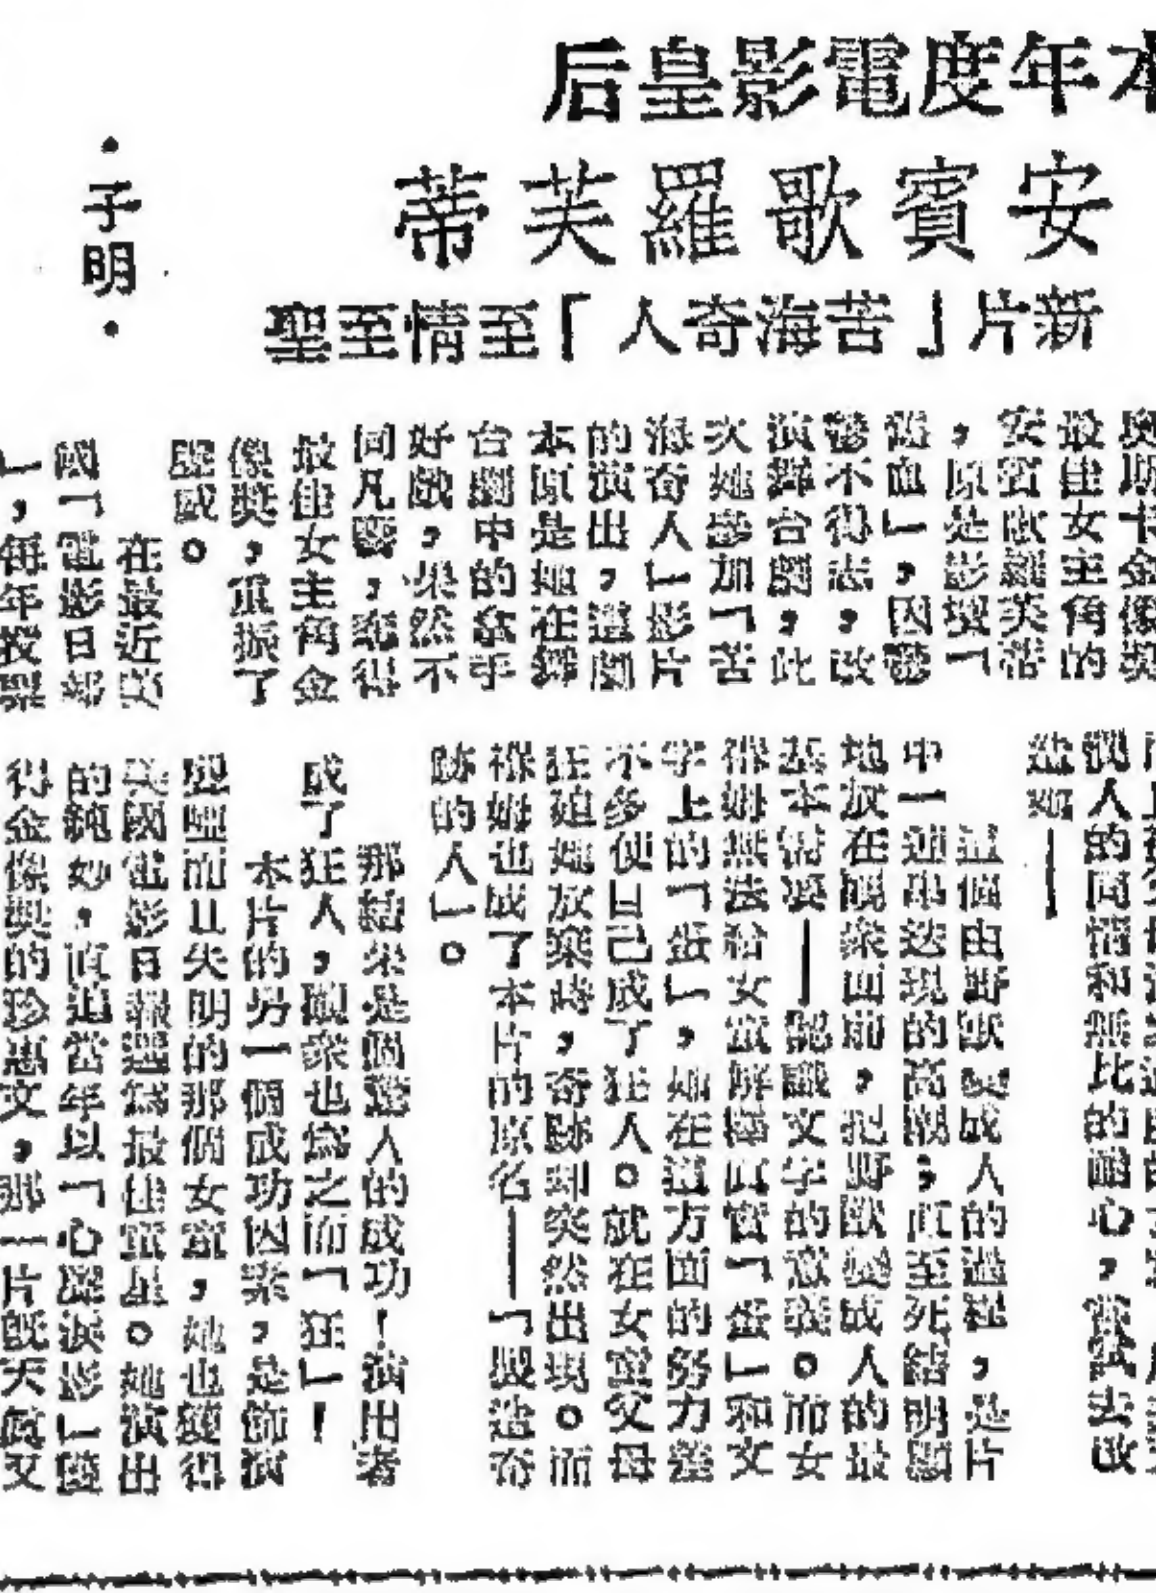 本年度電影皇后
安賓歌羅芙蒂
新片「苦海奇人」至情至聖
·子明·
奧斯卡金像獎
最佳女主角的
安賓歌羅芙蒂
，原是影壇「
舊血」，因鬱
鬱不得志，改
演舞台劇，此
次她參加「苦
海奇人」影片
的演出，這劇
本原是她在舞
台劇中的拿手
好戲，果然不
同凡響，奪得
最佳女主角金
像獎，重振了
聲威。
在最近美
國「電影日報
」，每年投票
個人的同情和無比的耐心，嘗試去改
造她——
這個由野獸變成人的過程，是片
中一連串迭現的高潮，直至死結明顯
地放在觀衆面前，把野獸變成人的最
基本需要——認識文字的意義。而女
保姆無法給女童解釋真實「蛋」和文
字上的「蛋」，她在這方面的努力差
不多使自己成了狂人。就在女童父母
狂迫她放棄時，奇跡却突然出現。而
褓姆也成了本片的原名——「製造奇
跡的人」。
那結果是個驚人的成功！演出者
成了狂人，觀衆也爲之而「狂」！
本片的另一個成功因素，是飾演
聾啞而且失明的那個女童，她也獲得
美國電影日報選爲最佳童星。她演出
的純妙，直追當年以「心聲淚影」獲
得金像獎的珍惠文，那一片旣天真又